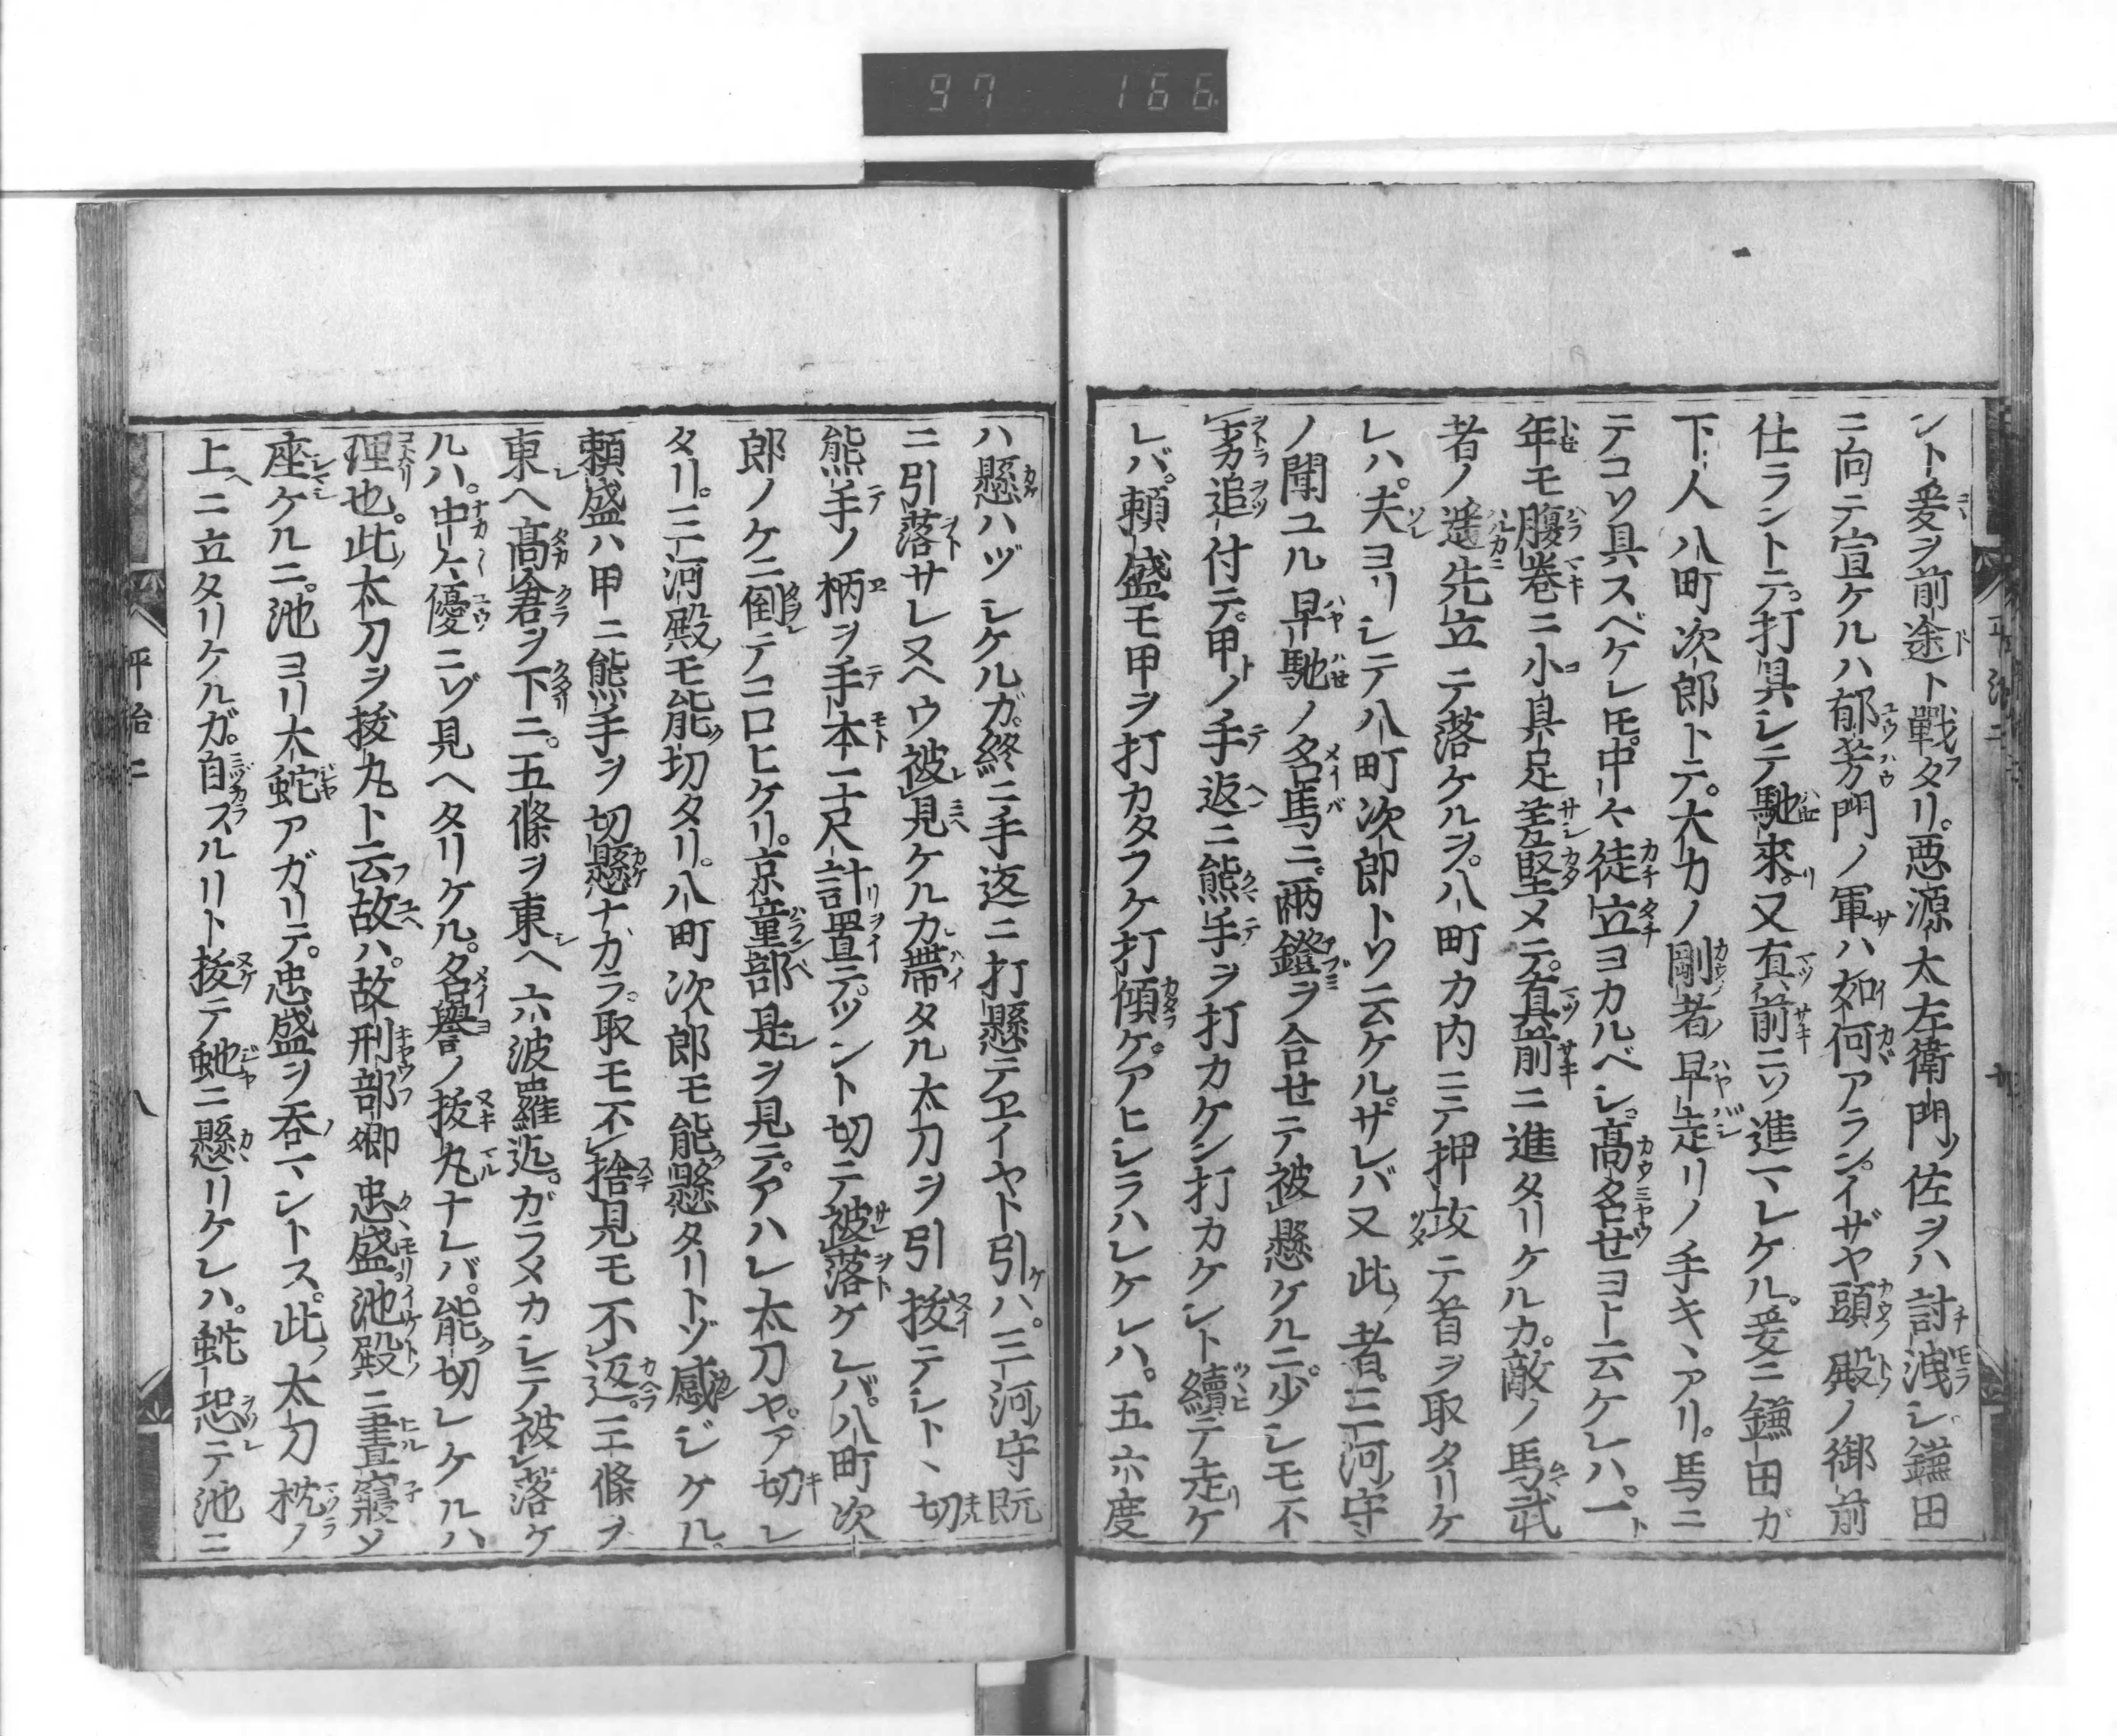 97 166
ント爰ヲ前途ト戰タリ。悪源太左衛門佐ヲハ討洩シ鎌田
ニ向テ宣ケルハ郁芳門ノ軍ハ如何アラン。イザヤ頭殿ノ御前
仕ラントテ。打具シテ馳來。又真前ニソ進マレケル。爰ニ鎌田ガ
下人八町次郎トテ。大力ノ剛者早走リノ手キヽアリ。馬ニ
テコソ具スベケレ𪜈。中々徒立ヨカルベシ。髙名せヨト云ケレハ。一
年モ腹巻ニ小具足差堅メテ。真前ニ進タリケルカ。敵ノ馬武
者ノ遥先立テ落ケルヲ。八町カ内ニテ押攻テ首ヲ取タリケ
レハ。夫ヨリシテ八町次郎トソ云ケル。サレバ又此者。三河守
ノ聞ユル早馳ノ名馬ニ。兩鐙ヲ合せテ被懸ケルニ。少シモ不
劣追付テ。甲ノ手返ニ熊手ヲ打カケン打カケント續テ走ケ
レバ。頼盛モ甲ヲ打カタフケ打傾ケ。アヒシラハレケレハ。五六度
ハ懸ハヅシケルガ。終ニ手返ニ打懸テヱイヤト引ハ。三河守既
ニ引落サレヌヘウ被見ケルカ帯タル太刀ヲ引拔テシトヽ切
熊手ノ柄ヲ手本二尺計置テ。ツント切テ被落ケレバ。八町次
郎ノケニ倒テコロヒケリ。京童部是ヲ見テ。アハレ太刀ヤ。ア切レ
タリ。三河殿モ能切タリ。八町次郎モ能懸タリトゾ感ジケル。
頼盛ハ甲ニ熊手ヲ切懸ナカラ。取モ不捨見モ不返。三條ヲ
東ヘ髙倉ヲ下ニ。五條ヲ東ヘ六波羅迄。ガラメカシテ被落ケ
ルハ。中々優ニゾ見ヘタリケル。名譽ノ拔丸ナレバ。能切レケルハ
理也。此太刀ヲ拔丸ト云故ハ。故刑部卿忠盛池殿ニ晝寢ソ
座ケルニ。池ヨリ大蛇アガリテ。忠盛ヲ呑マントス。此太刀枕ノ
上ニ立タリケルガ。自スルリト拔テ虵ニ懸リケレハ。蛇恐テ池ニ
平治二
八